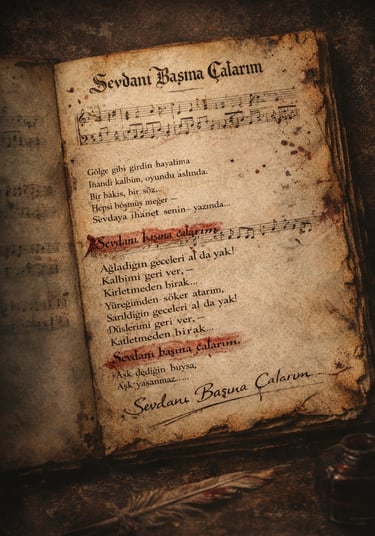 Sevdanı Başına Çalarım
Gölge gibi girdin hayatıma
İnandı kalbim, oyundu aslında.
Bir bakış, bir söz...
Hepsi boşmuş meğer —
Sevdaya ihanet senin yazında...
Sevdanı başına çalarım
Ağladığın geceleri al da yak!
Kalbimi geri ver, —
Kirletmeden bırak...
Yüreğimden söker atarım,
Sarıldığın geceleri al da yak!
Düşlerimi geri ver, —
Katletmeden bırak...
Sevdanı başına çalarım.
Aşk dediğin buysa,
Aşk yaşanmaz.....
Sevdanı Başına Çalarım